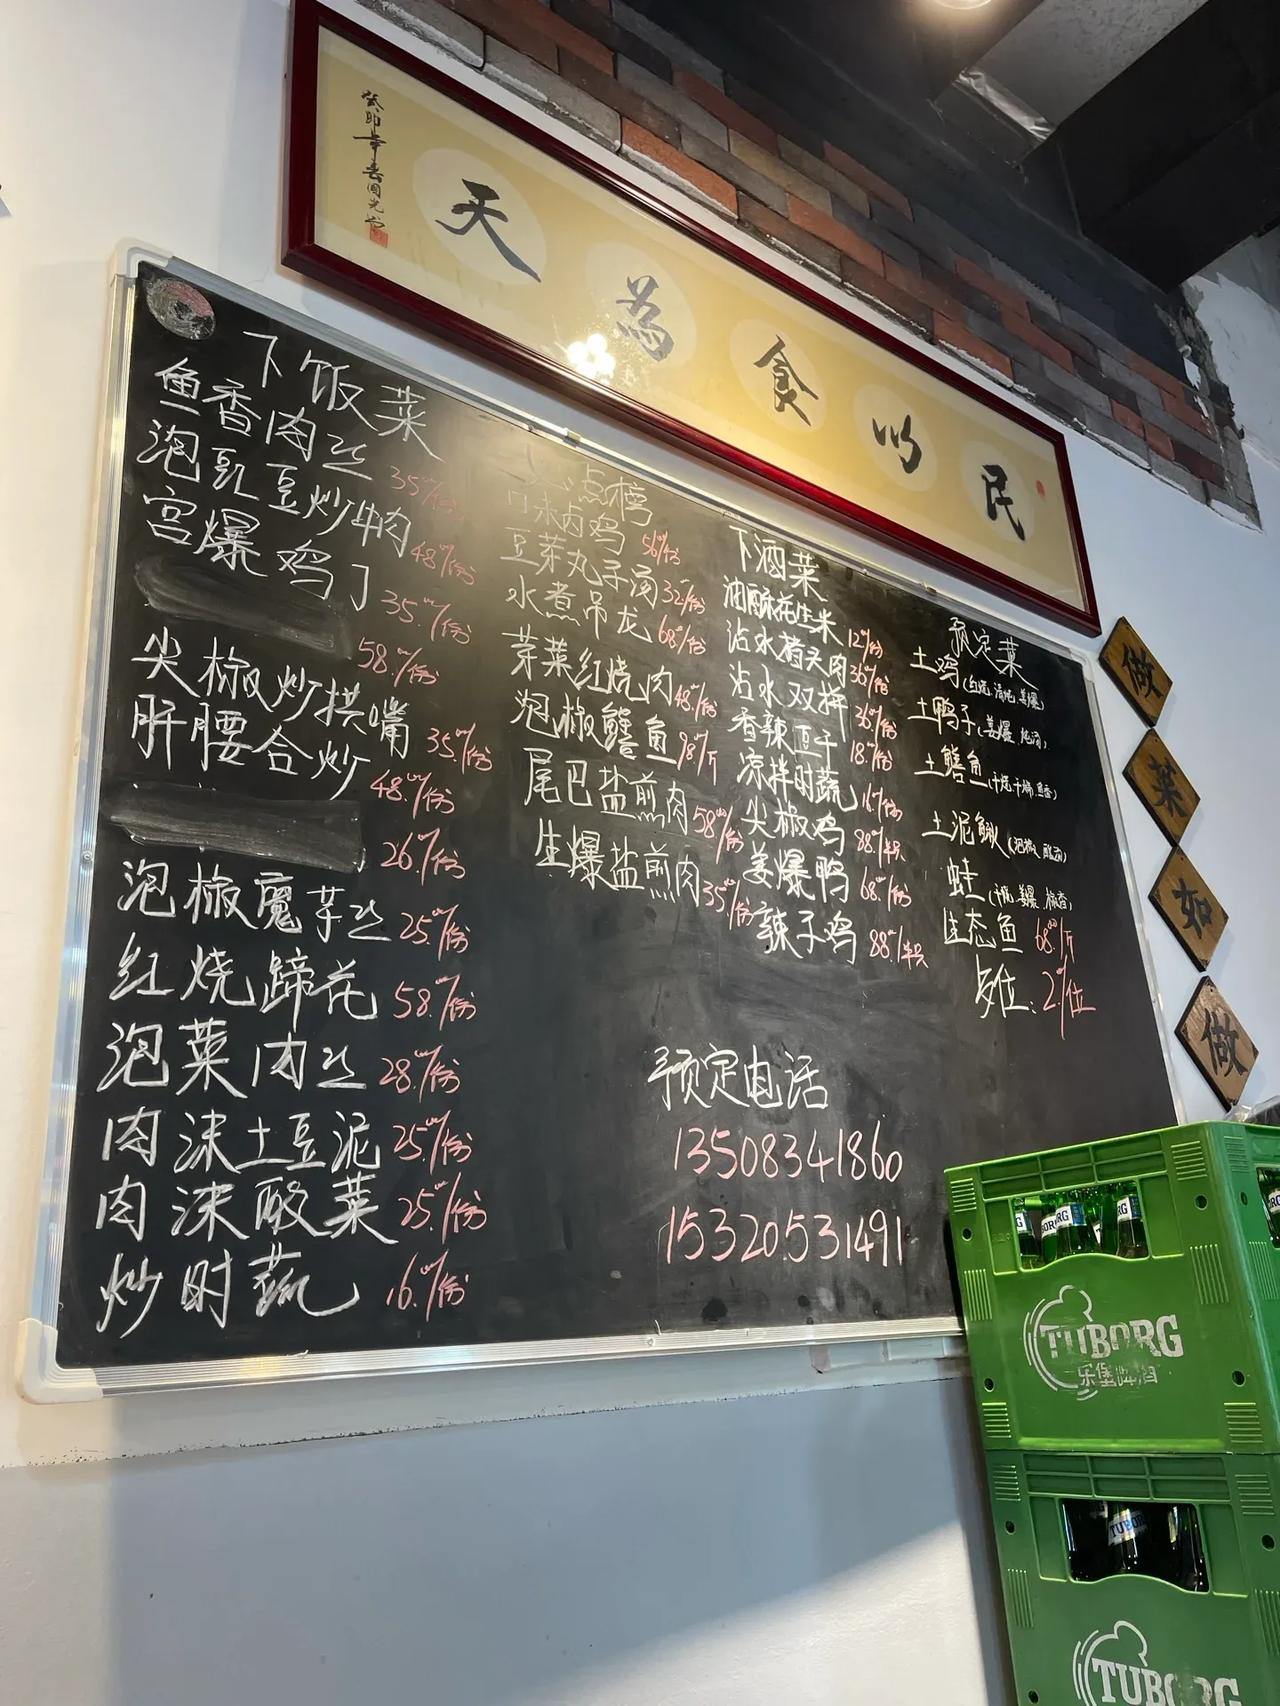 民以食为天
做菜如做
下饭菜
鱼香肉丝 35.00/份
泡豇豆炒牛肉 48.00/份
宫爆鸡丁 35.00/份
58.00/份
尖椒炒拱嘴 35.00/份
肝腰合炒 48.00/份
26.00/份
泡椒魔芋丝 25.00/份
红烧蹄花 58.00/份
泡菜肉丝 28.00/份
肉沫土豆泥 25.00/份
肉沫酸菜 25.00/份
炒时蔬 16.00/份
必点榜
口味卤鸡 56.00/份
豆芽丸子汤 32.00/份
水煮吊龙 68.00/份
芽菜红烧肉 48.00/份
泡椒鳝鱼 98.00/斤
尾巴盐煎肉 58.00/份
生爆盐煎肉 35.00/份
下酒菜
油酥花生米 12.00/份
沾水猪头肉 36.00/份
沾水双拼 36.00/份
香辣豆干 18.00/份
凉拌时蔬 16.00/份
尖椒鸡 88.00/半只
姜爆鸭 68.00/份
辣子鸡 88.00/半只
预定菜
土鸡(白烧 清炖 姜爆)
土鸭子(姜爆 炖汤)
土鳝鱼(干烧 干煸 鱼香)
土泥鳅(泡椒 酸汤)
蛙(干锅 姜爆 椒香)
生态鱼 68.00/斤
茶位:2.00/位
预定电话
13508341860
15320531491
TUBORG
乐堡啤酒
TUBORG